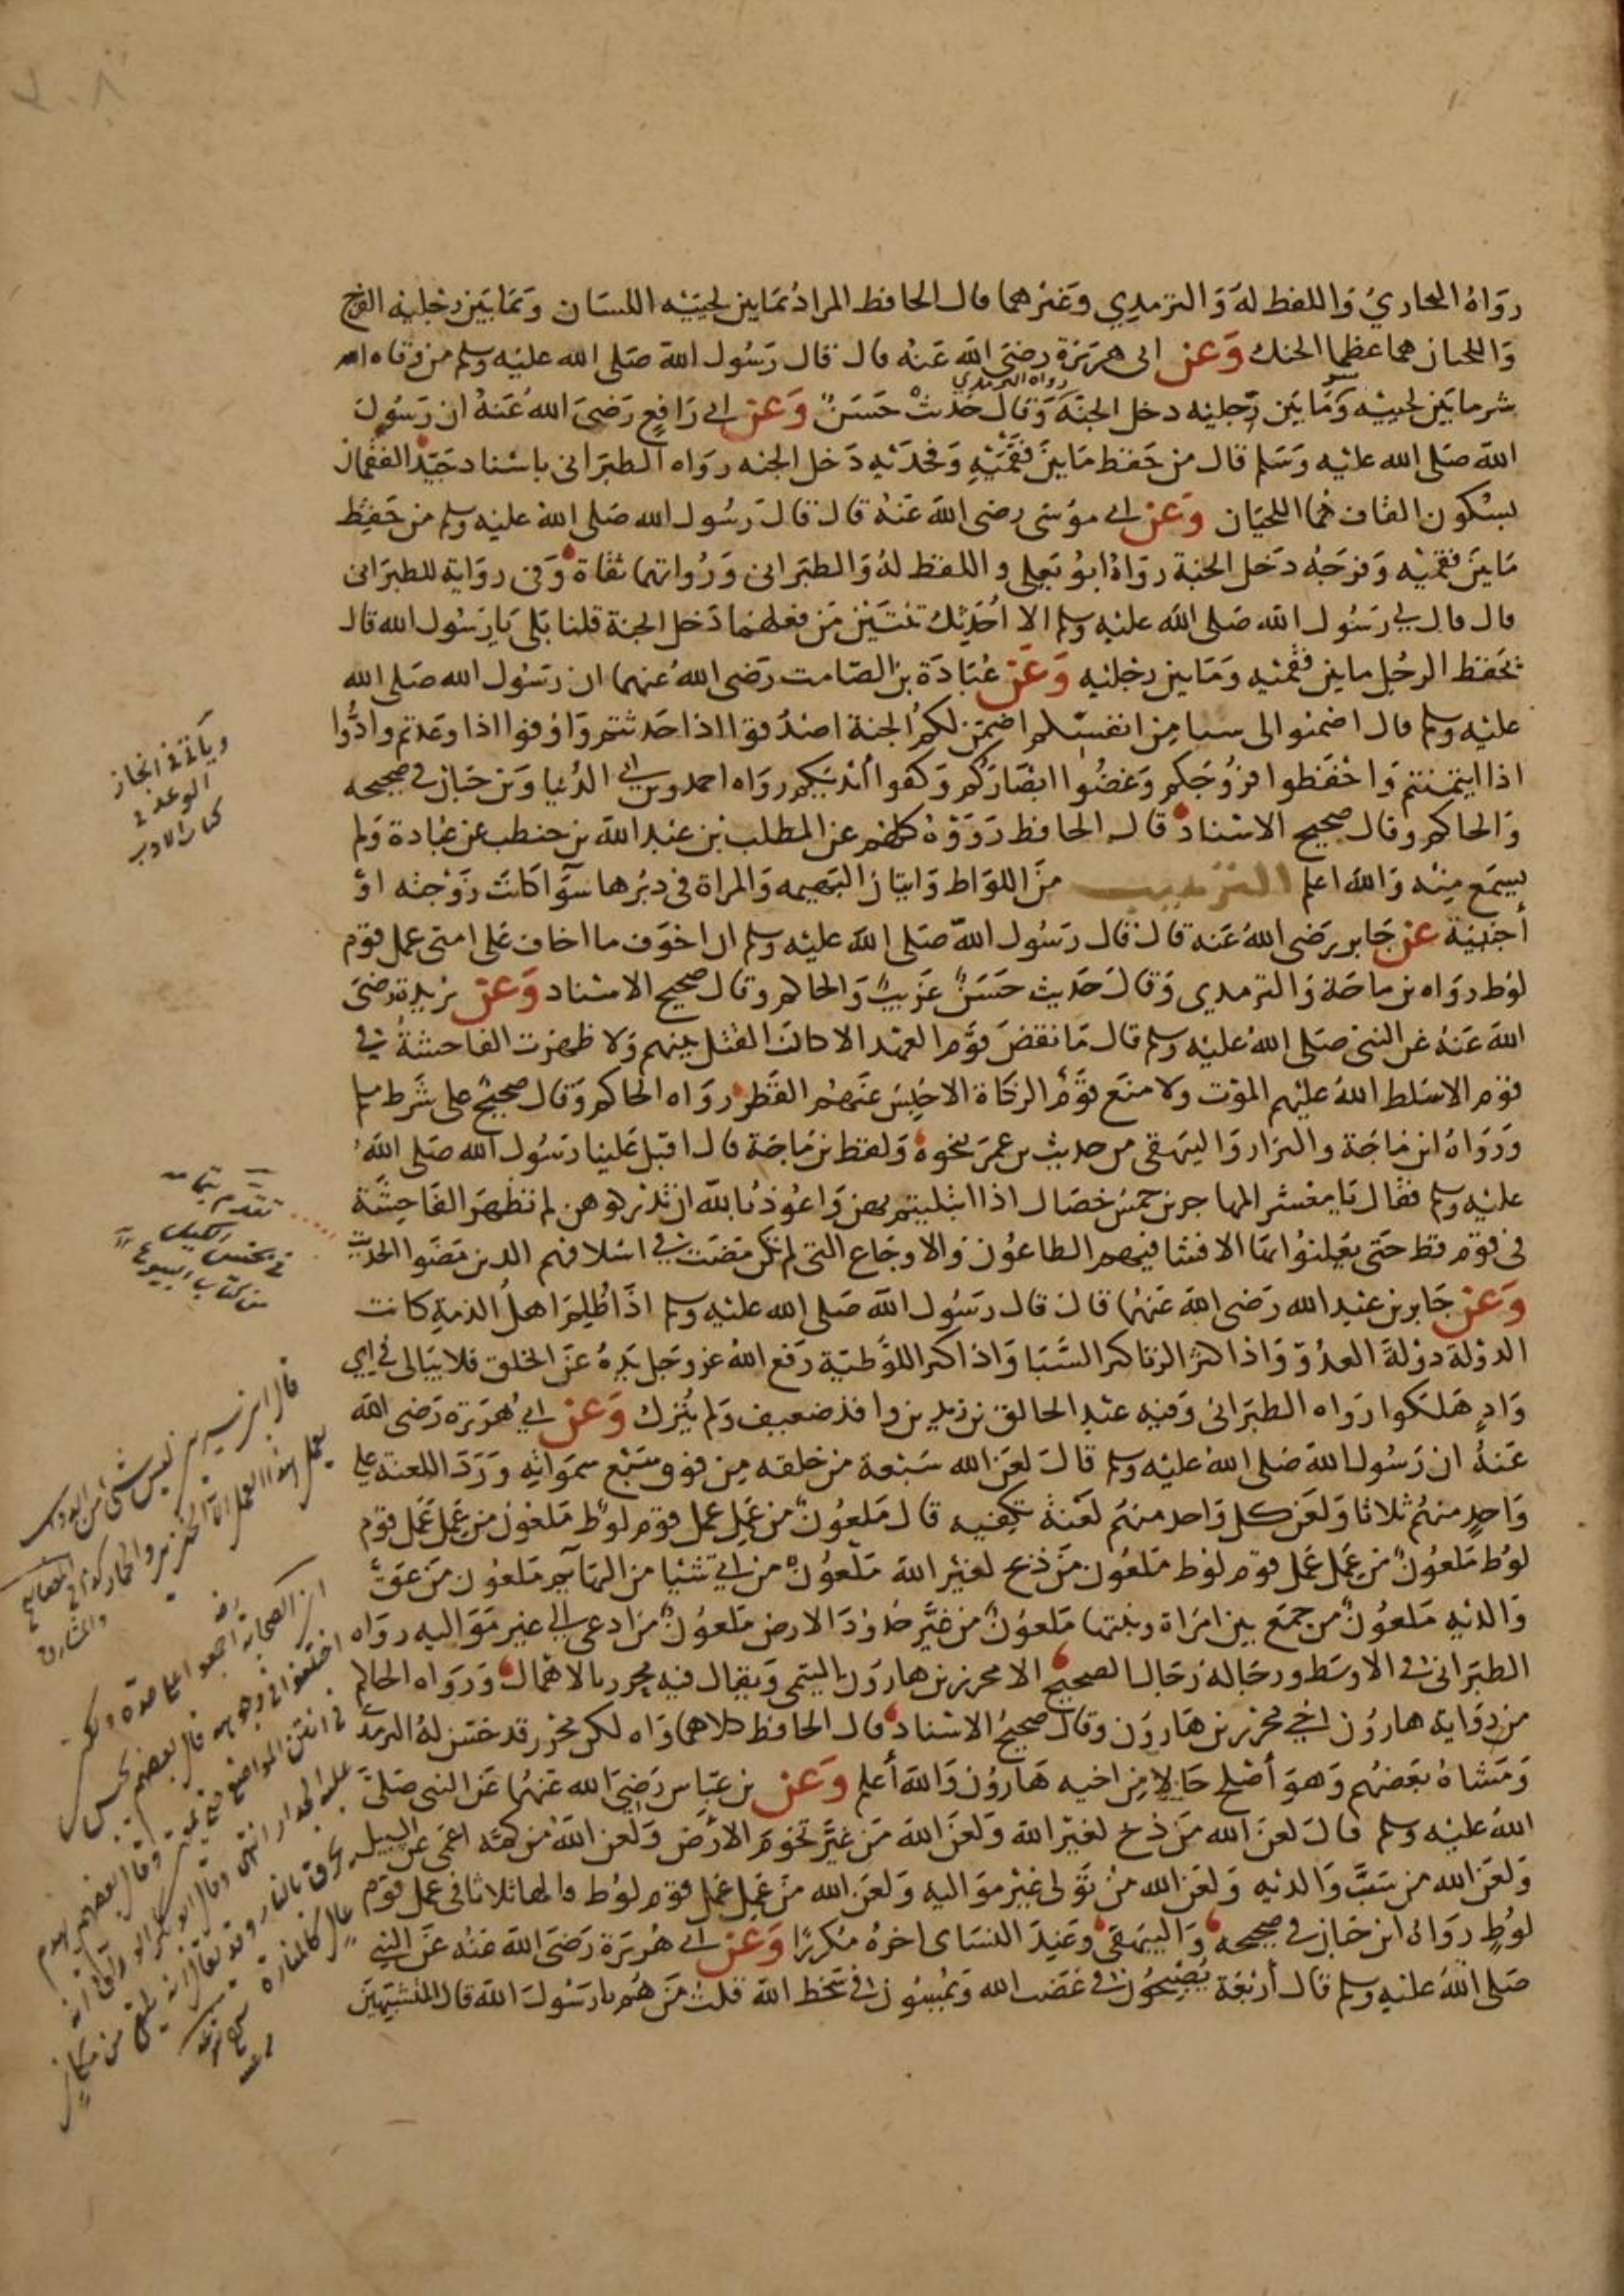 رواه البخاري واللفظ له والترمذي وغيرهما قال الحافظ المراد بما بين لحييه اللسان وبما بين رجليه الفرج
واللحيان هما عظما الحنك وعن ابي هريرة رضي الله عنه قال قال رسول الله صلى الله عليه وسلم من وقاه الله
شر ما بين لحييه وشر ما بين رجليه دخل الجنة رواه الترمذي وقال حديث حسن وعن ابي رافع رضي الله عنه ان رسول
الله صلى الله عليه وسلم قال من حفظ ما بين فقميه وفخذيه دخل الجنه رواه الطبراني باسناد جيد الفقمان
بسكون القاف هما اللحيان وعن ابي موسى رضي الله عنه قال قال رسول الله صلى الله عليه وسلم من حفظ
ما بين فقميه وفرجه دخل الجنة رواه ابو يعلى واللفظ له والطبراني ورواتهما ثقاة وفي رواية للطبراني
قال قال لي رسول الله صلى الله عليه وسلم الا احدثك ثنتين من فعلهما دخل الجنة قلنا بلى يا رسول الله قال
يحفظ الرجل ما بين فقميه وما بين رجليه وعن عبادة بن الصامت رضي الله عنهما ان رسول الله صلى الله
عليه وسلم قال اضمنوا لي ستا من انفسكم اضمن لكم الجنة اصدقوا اذا حدثتم واوفوا اذا وعدتم وادوا
اذا ايتمنتم واحفظوا فروجكم وغضوا ابصاركم وكفوا أيديكم رواه احمد وبن ابي الدنيا وبن حبان في صحيحه
والحاكم وقال صحيح الاسناد قال الحافظ رووه كلهم عن المطلب بن عبد الله بن حنطب عن عبادة ولم
يسمع منه والله اعلم الترهيب من اللواط واتيان البهيمه والمراة في دبرها سوآ كانت زوجته او
أجنبية عن جابر رضي الله عنه قال قال رسول الله صلى الله عليه وسلم ان اخوف ما اخاف على امتي عمل قوم
لوط رواه بن ماجة والترمذي وقال حديث حسن غريب والحاكم وقال صحيح الاسناد وعن بريدة رضي
الله عنه عن النبي صلى الله عليه وسلم قال ما نقض قوم العهد الا كان القتل بينهم ولا ظهرت الفاحشة في
قوم الا سلط الله عليهم الموت ولا منع قوم الزكاة الا حبس عنهم القطر رواه الحاكم وقال صحيح على شرط مسلم
ورواه ابن ماجة والبزار والبيهقي من حديث بن عمر بنحوه ولفظ بن ماجة قال اقبل علينا رسول الله صلى الله
عليه وسلم فقال يا معشر المهاجرين خمس خصال اذا ابتليتم بهن واعوذ بالله ان تدركوهن لم تظهر الفاحشة
في قوم قط حتى يعلنوا بها الا فشا فيهم الطاعون والاوجاع التي لم تكن مضت في اسلافهم الذين مضوا الحديث
وعن جابر بن عبد الله رضي الله عنهما قال قال رسول الله صلى الله عليه وسلم اذا ظلم اهل الذمة كانت
الدولة دولة العدو واذا كثر الزنا كثر السبا واذا كثر اللوطية رفع الله عز وجل يده عن الخلق فلا يبالي في اي
واد هلكوا رواه الطبراني وفيه عبد الخالق بن زيد بن واقد ضعيف ولم يترك وعن ابي هريرة رضي الله
عنه ان رسول الله صلى الله عليه وسلم قال لعن الله سبعة من خلقه من فوق سبع سمواته وردد اللعنة على
واحد منهم ثلاثا ولعن كل واحد منهم لعنة تكفيه قال ملعون من عمل عمل قوم لوط ملعون من عمل عمل قوم
لوط ملعون من عمل عمل قوم لوط ملعون من ذبح لغير الله ملعون من اتى شيا من البهآيم ملعون من عق
والديه ملعون من جمع بين امراة وبنتها ملعون من غير حدود الارض ملعون من ادعى الى غير مواليه رواه
الطبراني في الاوسط ورجاله رجال الصحيح الا محرز بن هارون التيمي ويقال فيه محرر بالاهمال ورواه الحاكم
من رواية هارون اخي محرز بن هارون وقال صحيح الاسناد قال الحافظ كلاهما واه لكن محرز قد حسن له الترمذي
ومشاه بعضهم وهو أصلح حالا من اخيه هارون والله أعلم وعن بن عباس رضي الله عنهما عن النبي صلى
الله عليه وسلم قال لعن الله من ذبح لغير الله ولعن الله من غير تخوم الارض ولعن الله من كمه اعمى عن السبيل
ولعن الله من سب والديه ولعن الله من تولى غير مواليه ولعن الله من عمل عمل قوم لوط قالها ثلاثا في عمل قوم
لوط رواه ابن حبان في صحيحه والبيهقي وعند النساي اخره مكررا وعن ابي هريرة رضي الله عنه عن النبي
صلى الله عليه وسلم قال أربعة يصبحون في غضب الله ويمسون في سخط الله قلت من هم يا رسول الله قال المتشبهين
وياتي في انجاز
الوعد في
كتاب الادب
تقدم بتمامه
في بخس الكيل
من كتاب البيوع
قال ابن سيرين ليس شيء من الدواب
يعمل هذا العمل الا الخنزير والحمار